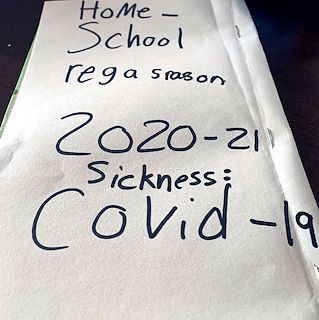 HoMe-
School
rega srason
2020-21
Sickness:
Covid-19